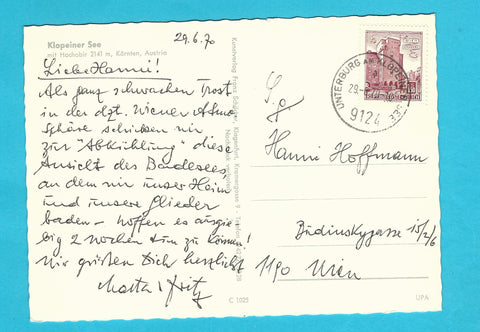 29.6.70
Klopeiner See
mit Hochobir 2141 m, Kärnten, Austria
Liebe Hanni!
Als ganz schwachen Trost
in der dzt. Wiener Atmo
sphäre schicken wir
zur "Abkühlung" diese
Ansicht des Badesees,
an dem wir unser Heim
und unsere Glieder
baden – hoffen es ausgie
big 2 Wochen tun zu können!
Wir grüßen Dich herzlichst
Martha + Fritz
Kunstverlag Franz Schilcher, Klagenfurt
UNTERBURG AM KLOPEINER SEE
9124
Hanni Hoffmann
Budinskygasse 15/2/6
1190 Wien
C 1025
UPA